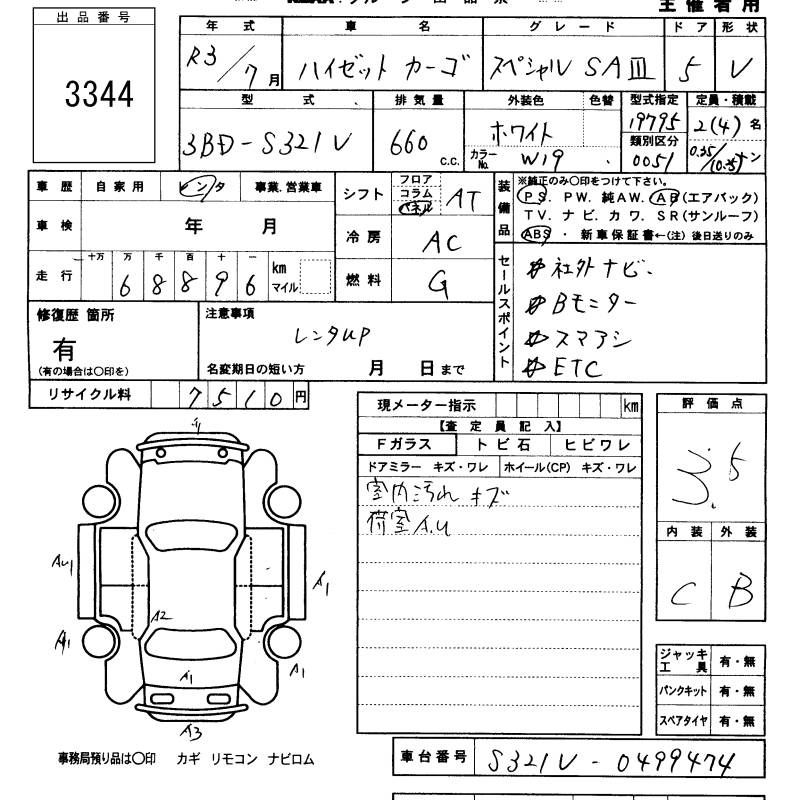 主催者用
出品番号
3344
年式 車名 グレード ドア 形状
R3/7月 ハイゼット カーゴ スペシャル SAIII 5 V
型式 排気量 外装色 色替 型式指定 定員・積載
3BD-S321V 660 c.c. ホワイト 19795 2(4)名
カラーNo. W19 類別区分 0051 0.35/(0.25)トン
車歴 自家用 レンタ 事業.営業車
車検 年 月
走行 十万 万 千 百 十 一 km マイル
68896
シフト フロア コラム パネル AT
冷房 AC
燃料 G
装備品
※純正のみ○印をつけて下さい。
PS. PW. 純AW. AB(エアバック)
TV. ナビ. カワ. SR(サンルーフ)
ABS ・ 新車保証書←(注) 後日送りのみ
セールスポイント
社外ナビ.
Bモニター
スマアシ
ETC
修復歴 箇所
有
(有の場合は○印を)
注意事項
レンタUP
名変期日の短い方 月 日まで
リサイクル料 7510円
現メーター指示 km
【査定員記入】
Fガラス トビ石 ヒビワレ
ドアミラー キズ・ワレ ホイール(CP) キズ・ワレ
室内汚れ キズ
荷室A.U
評価点
3.5
内装 外装
C B
ジャッキ工具 有・無
パンクキット 有・無
スペアタイヤ 有・無
A1
A1
A2
A1
A1
A3
事務局預り品は○印 カギ リモコン ナビロム
車台番号 S321V-0499474